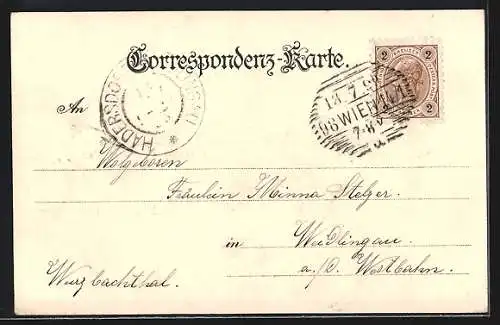 Correspondenz-Karte.
An
HADERSDORF
13 7 9
98 WIEN 1/1
7-8 V
2 KREUZER 2
Wolgeboren
Fräulein Minna Stelzer.
in Weidlingau
a./d. Westbahn.
Wurzbachthal.